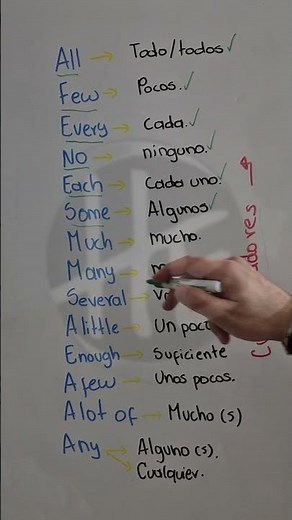 All → Todo/todos ✓
Few → Pocos. ✓
Every → cada. ✓
NO → ninguno. ✓
Each → Cada uno. ✓
Some → Algunos ✓
Much → mucho.
Many →
Several →
A little → Un poco
Enough → Suficiente
A few → Unos pocos.
A lot of → Mucho (s)
Any → Alguno (s).
→ Cualquier.